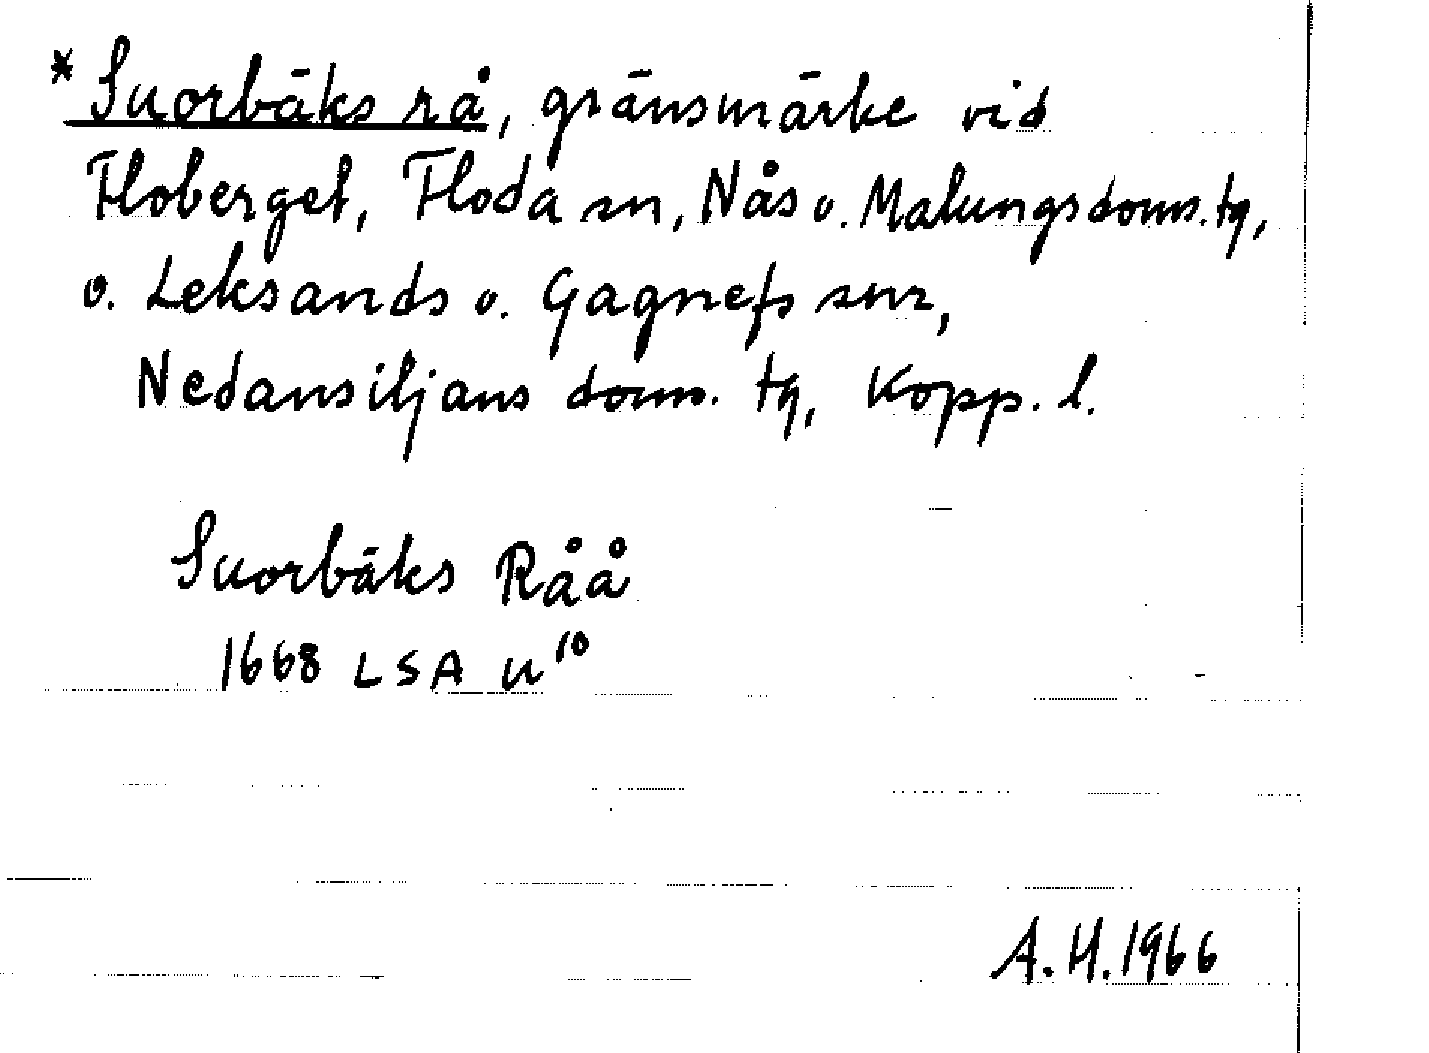 * Suorbäks rå, gränsmärke vid
Floberget, Floda sn, Nås o. Malungs doms. tg,
o. Leksands o. Gagnefs snr,
Nedansiljans doms. tg, Kopp. l.
Suorbäks Råå
1668 LSA U¹⁰
A.H. 1966